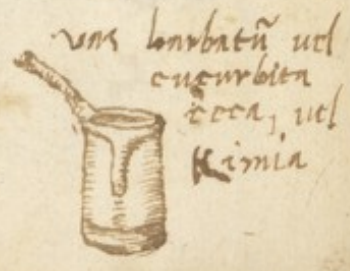 vas barbatũ vel
cucurbita
cęca, vel
Kimia